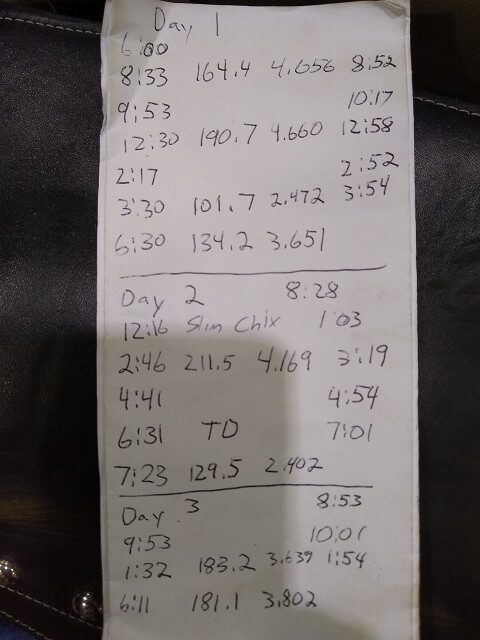 Day 1
6:00
8:33 164.4 4.656 8:52
9:53 10:17
12:30 190.7 4.660 12:58
2:17 2:52
3:30 101.7 2.472 3:54
6:30 134.2 3.651
Day 2 8:28
12:16 Slim Chix 1:03
2:46 211.5 4.169 3:19
4:41 4:54
6:31 TD 7:01
7:23 129.5 2.402
Day 3 8:53
9:53 10:01
1:32 183.2 3.639 1:54
6:11 181.1 3.802